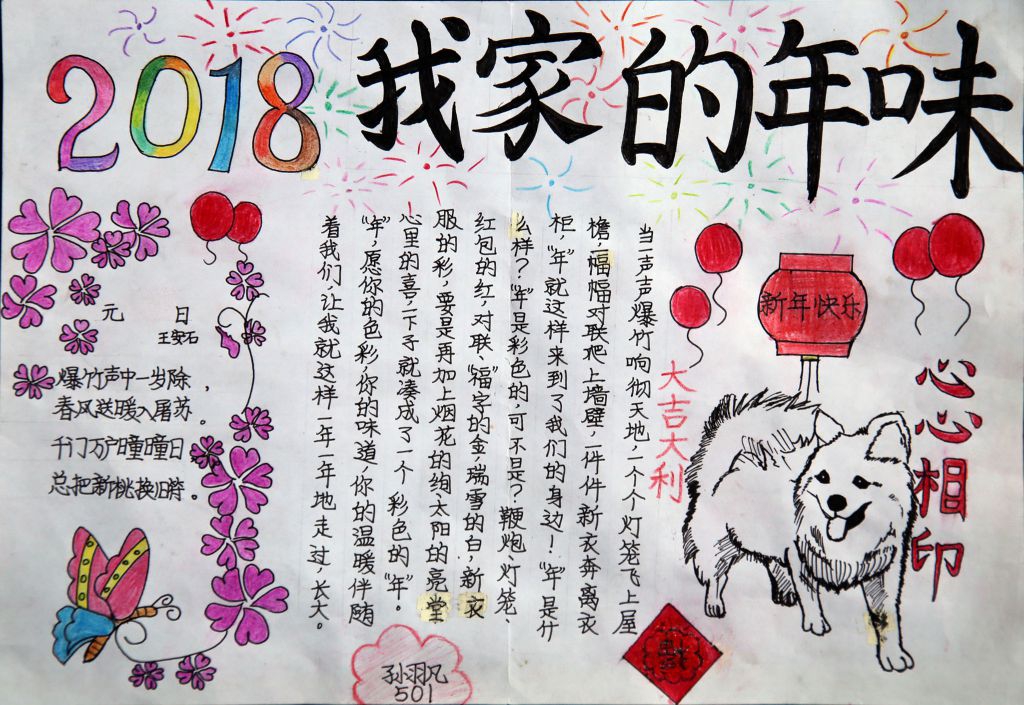 2018
我家的年味
元 日
王安石
爆竹声中一岁除，
春风送暖入屠苏。
千门万户曈曈日，
总把新桃换旧符。
当声声爆竹响彻天地，一个个灯笼飞上屋
檐，幅幅对联爬上墙壁，一件件新衣奔离衣
柜，“年”就这样来到了我们的身边！“年”是什
么样？“年”是彩色的，可不是？鞭炮、灯笼、
红包的红，对联、“福”字的金，瑞雪的白，新衣
服的彩，要是再加上烟花的绚，太阳的亮堂
心里的喜，一下子就凑成了一个彩色的“年”。
“年”，愿你的色彩，你的味道，你的温暖伴随
着我们，让我就这样一年一年地走过，长大。
新年快乐
大吉大利
心心相印
福
孙羽凡
501